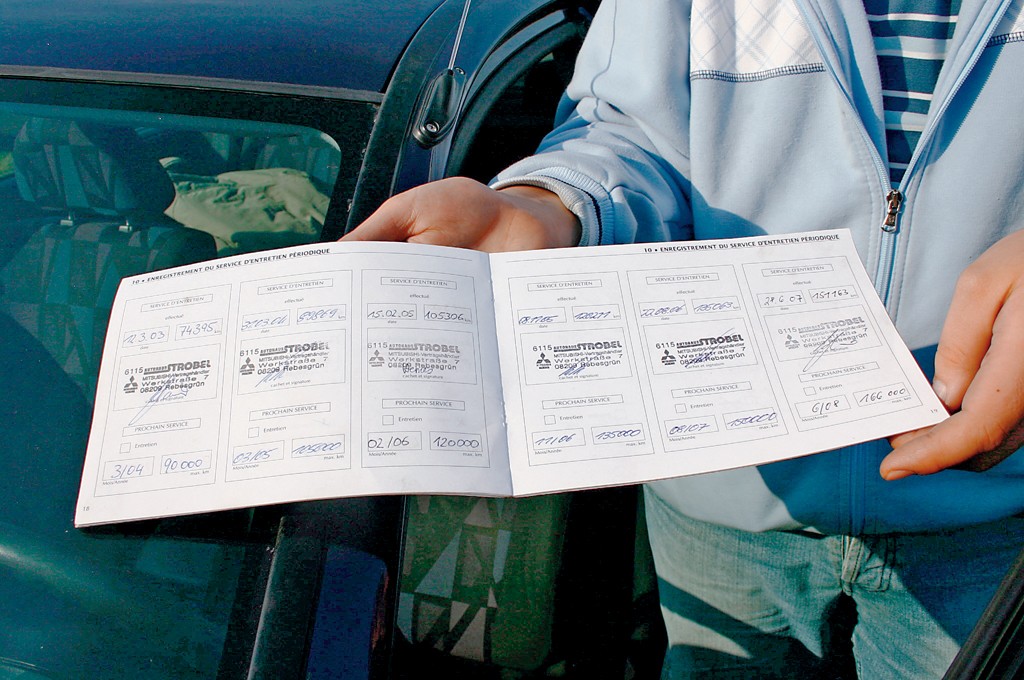 10 • ENREGISTREMENT DU SERVICE D'ENTRETIEN PÉRIODIQUE
SERVICE D'ENTRETIEN
effectué
12.3.03 74.395 km
date
6115 AUTOHAUS STROBEL
MITSUBISHI-Vertragshändler
Werkstraße 7
08209 Rebesgrün
PROCHAIN SERVICE
Entretien
3/04 90.000
Mois/Année max. km
18
SERVICE D'ENTRETIEN
effectué
date km
6115 AUTOHAUS STROBEL
MITSUBISHI-Vertragshändler
Werkstraße 7
08209 Rebesgrün
PROCHAIN SERVICE
Entretien
03/05 105000
Mois/Année max. km
SERVICE D'ENTRETIEN
effectué
15.02.05 105306 km
date
6115 AUTOHAUS STROBEL
MITSUBISHI-Vertragshändler
Werkstraße 7
08209 Rebesgrün
cachet et signature
PROCHAIN SERVICE
Entretien
02/06 120000
Mois/Année max. km
10 • ENREGISTREMENT DU SERVICE D'ENTRETIEN PÉRIODIQUE
SERVICE D'ENTRETIEN
effectué
date km
6115 AUTOHAUS STROBEL
MITSUBISHI-Vertragshändler
Werkstraße 7
08209 Rebesgrün
cachet et signature
PROCHAIN SERVICE
Entretien
11/06 135000
Mois/Année max. km
SERVICE D'ENTRETIEN
effectué
22.08.06 km
date
6115 AUTOHAUS STROBEL
MITSUBISHI-Vertragshändler
Werkstraße 7
08209 Rebesgrün
cachet et signature
PROCHAIN SERVICE
Entretien
08/07 150000
Mois/Année max. km
SERVICE D'ENTRETIEN
effectué
28.6.07 151163 km
date
6115 AUTOHAUS STROBEL
MITSUBISHI-Vertragshändler
Werkstraße 7
08209 Rebesgrün
cachet et signature
PROCHAIN SERVICE
Entretien
6/08 166000
Mois/Année max. km
19